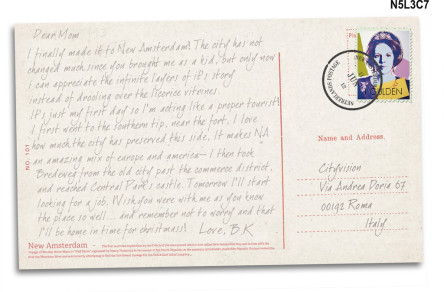 N5L3C7
Dear Mom
I finally made it to New Amsterdam! The city has not
changed much since you brought me as a kid, but only now
i can appreciate the infinite layers of it's story
instead of drooling over the licorice vitrines.
It's just my first day so I'm acting like a proper tourist!
I first went to the southern tip, near the fort. I love
how much the city has preserved this side. It makes NA
an amazing mix of europe and america - I then took
Bredeweg from the old city past the commerce district,
and reached Central Park's castle. Tomorrow I'll start
looking for a job. Wish you were with me as you know
the place so well... and remember not to worry and that
I'll be home in time for christmas! Love, B.K
New Amsterdam -
NO. 101
NETHERLANDS POSTAGE
JUN
GULDEN
Name and Address.
Cityvision
Via Andrea Doria 67
00192 Roma
Italy